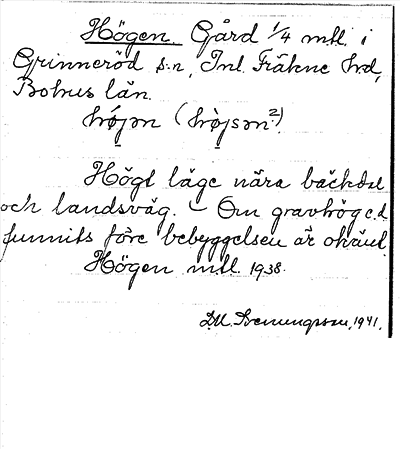 Högen Gård 1/4 mtl. i
Grinneröd s:n, Inl. Fräkne hrd,
Bohus län.
hǿjən (hòjsən?)
Högt läge nära bäckdal
och landsväg. – Om gravhög e.d.
funnits före bebyggelsen är okänt.
Högen mtl. 1938.
D.M. Svenungsson, 1941.